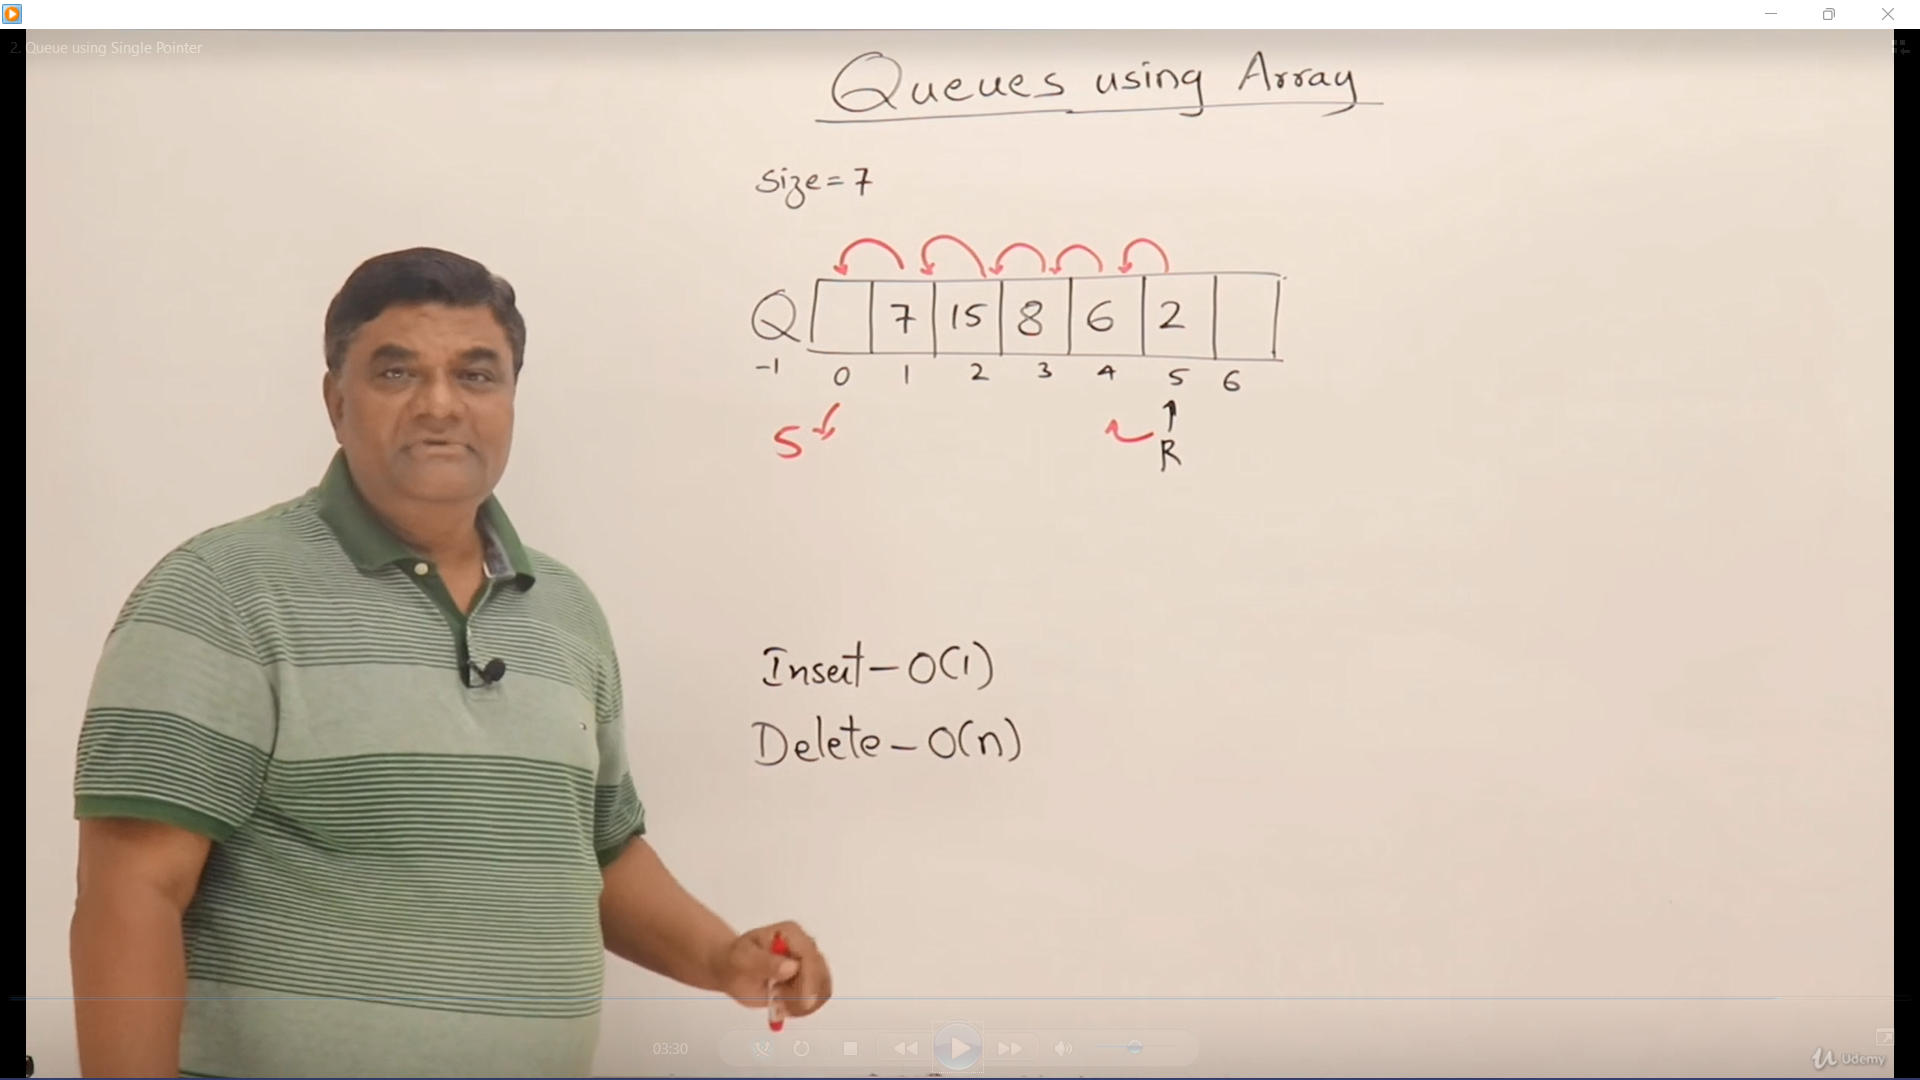 2. Queue using Single Pointer
Queues using Array
Size=7
Q 7 15 8 6 2
-1 0 1 2 3 4 5 6
5
R
Insert - O(1)
Delete - O(n)
03:30
Udemy